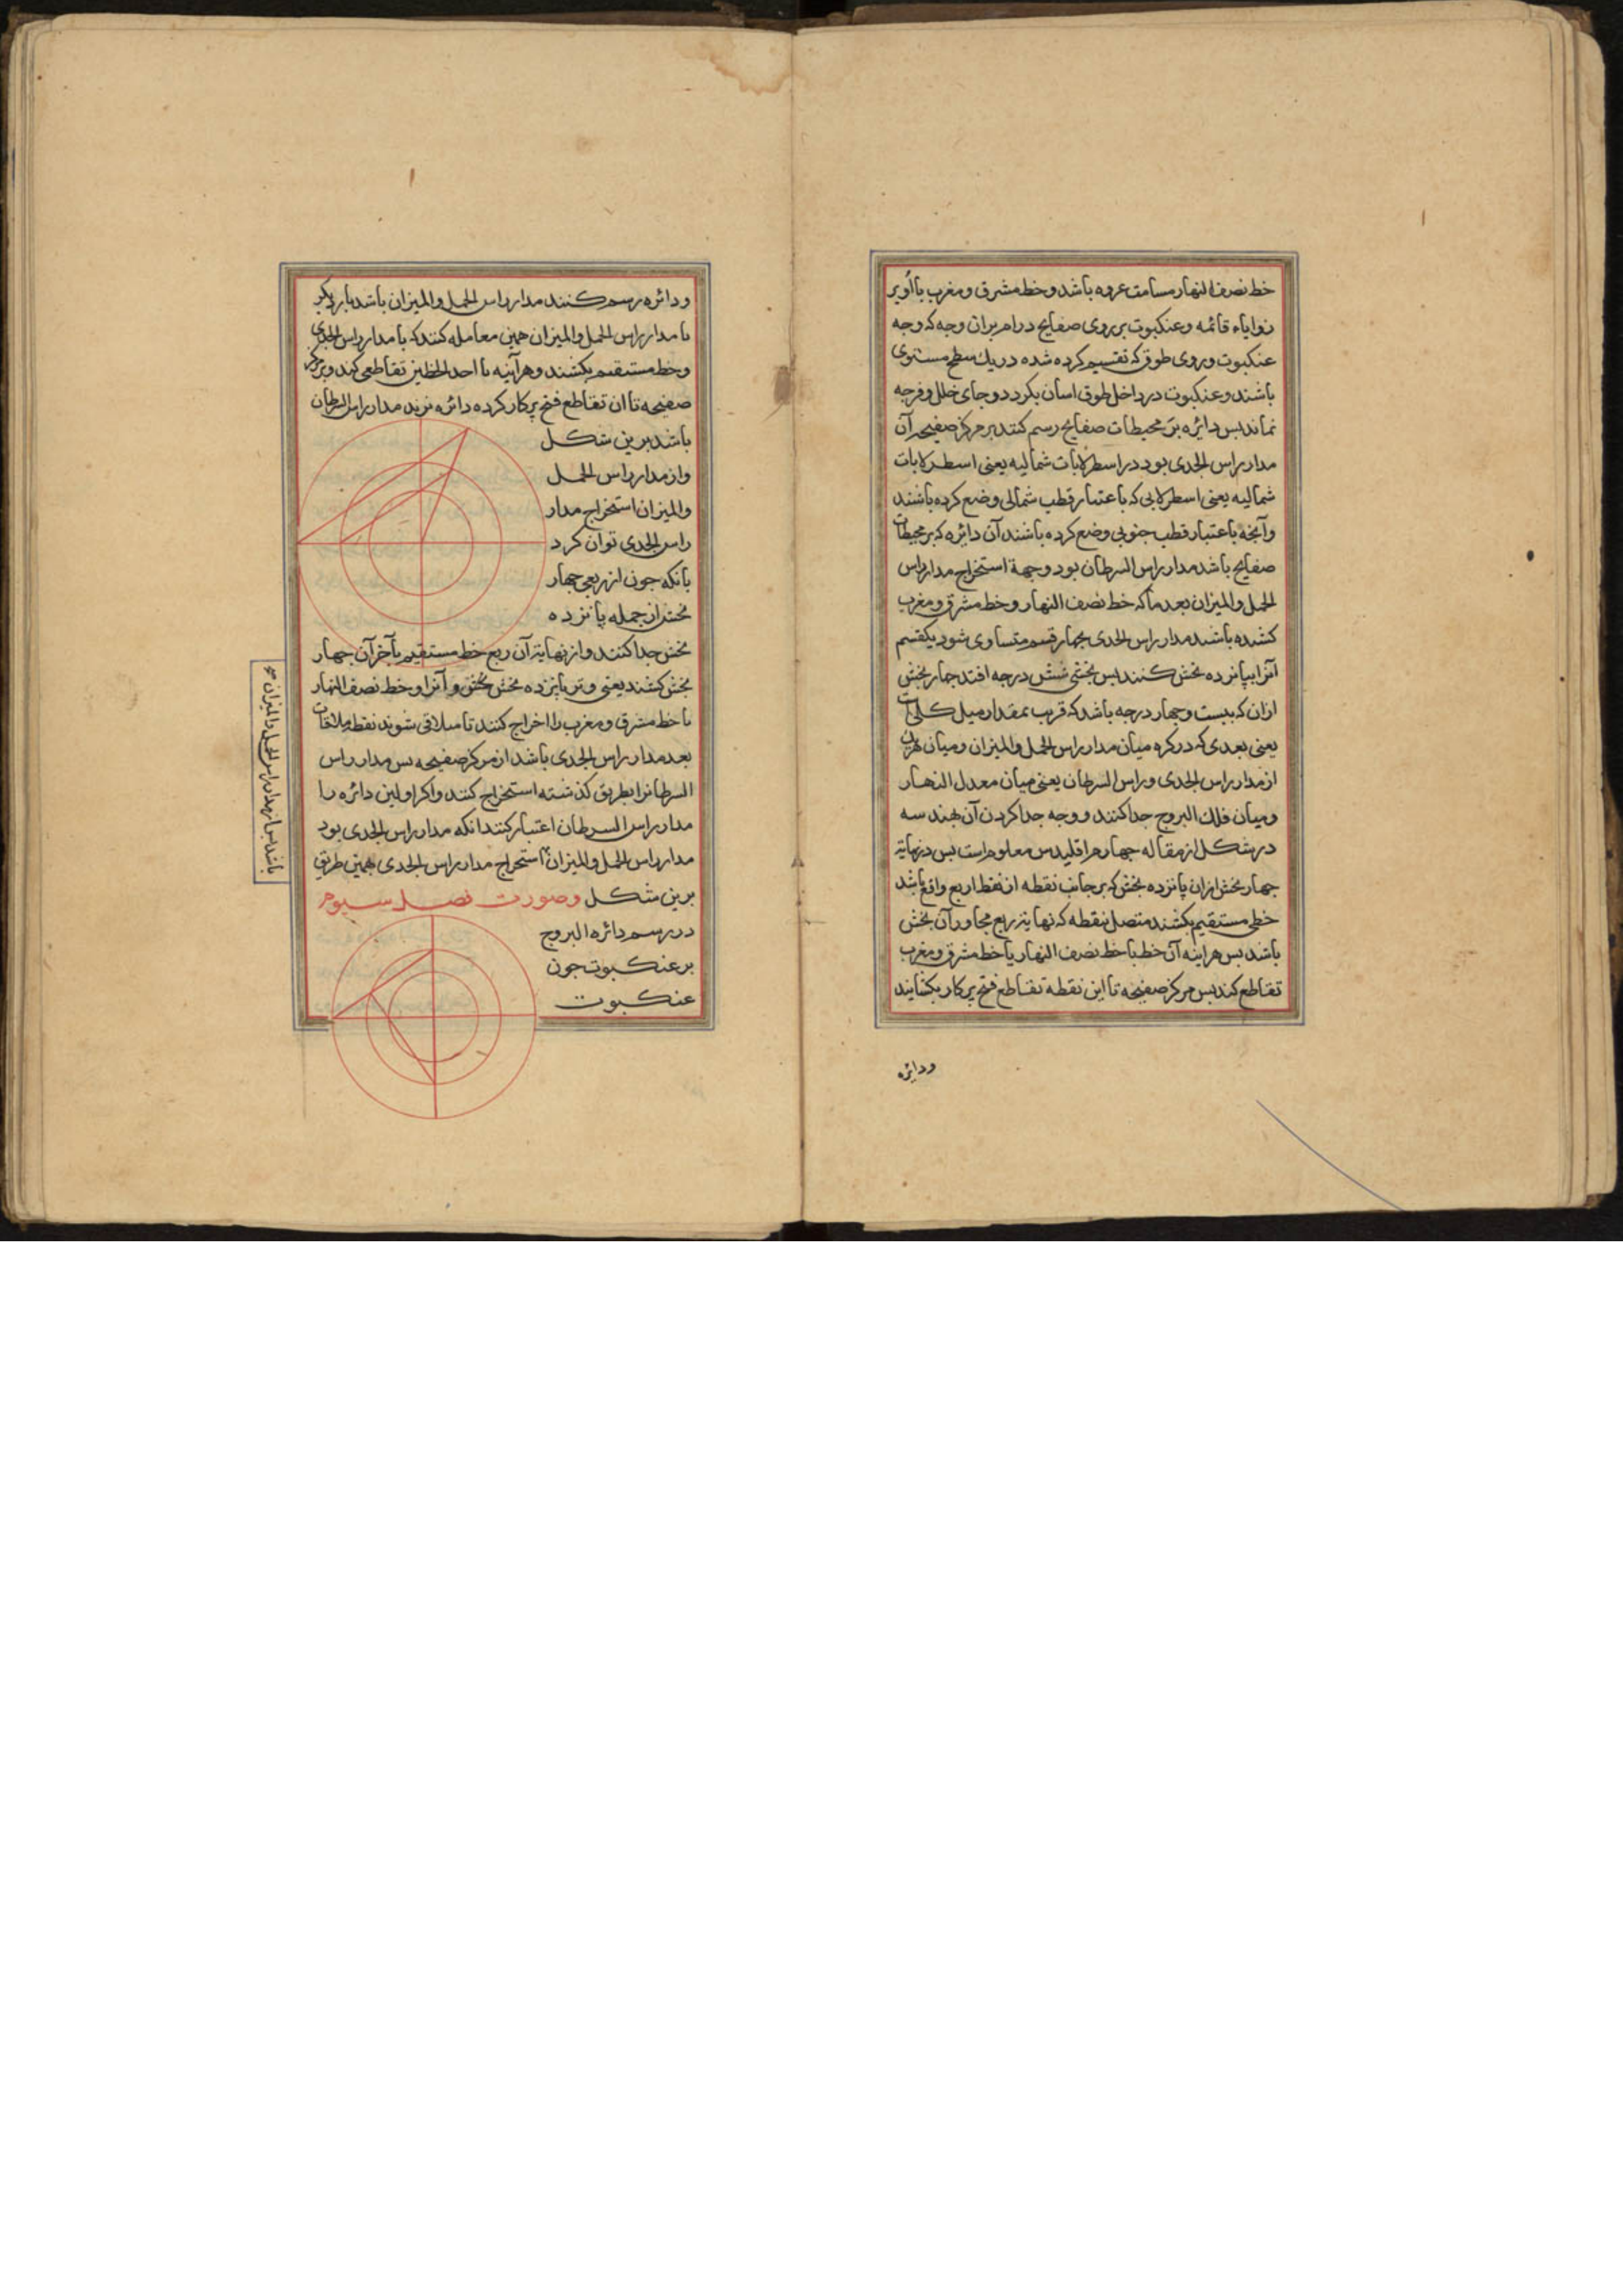 خط نصف النهار مسامت عروه باشد و خط مشرق و مغرب با او بر
زوایاء قائمه و عنکبوت بر روی صفایح درام بران وجه که وجه
عنکبوت و روی طوق که تقسیم کرده شده در یك سطح مستوی
باشند و عنکبوت در داخل طوق اسان بکردد و جای خلل و فرجه
نماند بس دائره بر محیطات صفایح رسم کنند بر مرکز صفیحه آن
مدار راس الجدی بود در اسطرلابات شمالیه یعنی اسطرلابات
شمالیه یعنی اسطرلابی که باعتبار قطب شمالی وضع کرده باشند
و آنجه باعتبار قطب جنوبی وضع کرده باشند آن دائره که بر محیطات
صفایح باشد مدار راس السرطان بود و جهة استخراج مدار راس
الحمل و المیزان بعد ما که خط نصف النهار و خط مشرق و مغرب
کشیده باشند مدار راس الجدی بجهار قسم متساوی شود یکقسم
انرا ببانزده بخش کنند بس بخشی شش درجه افتد جهار بخش
ازان که بیست و جهار درجه باشد که قریب بمقدار میل کلی است
یعنی بعدی که در کره میان مدار راس الحمل و المیزان و میان هریك
از مدار راس الجدی و راس السرطان یعنی میان معدل النهار
و میان فلك البروج جدا کنند و وجه جدا کردن آن بهندسه
در شکل از مقاله جهارم اقلیدس معلوم است بس در نهایة
جهار بخش ازان پانزده بخش که بر جانب نقطه از نقط اربع واقع باشد
خطی مستقیم بکشند متصل بنقطه که نهایة ربع مجاور آن بخش
باشد بس هراینه آن خط با خط نصف النهار یا خط مشرق و مغرب
تقاطع کند بس مرکز صفیحه تا این نقطه تقاطع فتح پرکار بکشایند
ودائره
و دائره رسم کنند مدار راس الحمل و المیزان باشد بار دیکر
با مدار راس الحمل و المیزان همین معامله کنند که با مدار راس الجدی
و خط مستقیم بکشند و هرآینه با احد الخطین تقاطعی کند و بر مرکز
صفیحه تا ان تقاطع فتح پرکار کرده دائره زنند مدار راس السرطان
باشد برین شکل
و از مدار راس الحمل
و المیزان استخراج مدار
راس الجدی توان کرد
بانکه جون از ربعی جهار
بخش از جمله پانزده
بخش جدا کنند و از نهایة آن ربع خط مستقیم بآخر آن جهار
بخش کشند یعنی وتر یانزده بخش و آنرا و خط نصف النهار
با خط مشرق و مغرب را اخراج کنند تا میلاقی شوند نقطه ملاقات
بعد مدار راس الجدی باشد از مرکز صفیحه بس مدار راس
السرطانرا بطریق کذشته استخراج کنند و اکر اولین دائره را
مدار راس السرطان اعتبار کنند انکه مدار راس الجدی بود
مدار راس الحمل و المیزان استخراج مدار راس الجدی بهمین طریق
برین شکل و صورت فصل سیوم
در رسم دائره البروج
بر عنکبوت جون
عنکبوت
باشد بس از مدار راس الحمل و المیزان